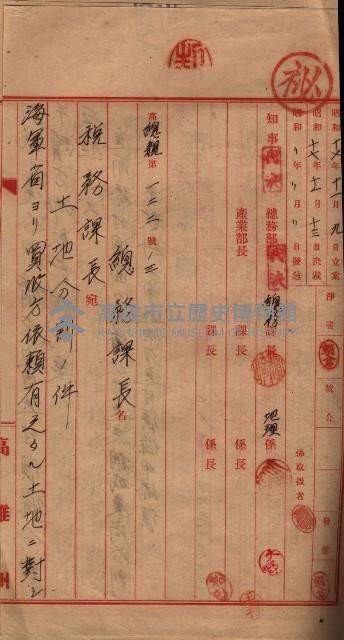 秘
昭和十七年十一月九日立案
昭和十七年十一月十三日決裁
昭和 年 月 日發送
淨書
校合
發送
係取扱者
知事 代決
總務部長 代決
總務課長
地理係
產業部長
課長
係長
課長
係長
高總親第一二二號ノ三
總務課長名
税務課長宛
土地分割ノ件
海軍省ヨリ買收方依頼有之タル土地ニ對シ
高雄州
高雄市立歷史博物館
KAOHSIUNG MUSEUM OF HISTORY